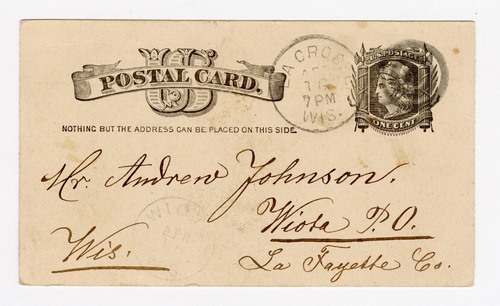 US
POSTAL CARD.
LA CROSSE
AP
16
7 PM
WIS.
U.S. POSTAGE
ONE CENT
NOTHING BUT THE ADDRESS CAN BE PLACED ON THIS SIDE.
Mr. Andrew Johnson.
Wiota P.O.
Wis.
La Fayette Co.
WIOTA
APR